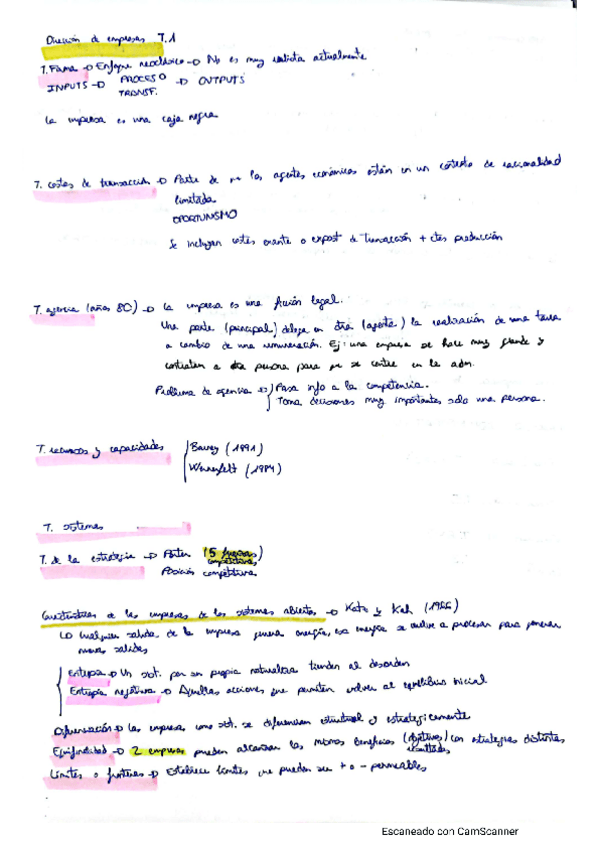 Dirección de empresas T.1
T. Firma → Enfoque neoclásico → No es muy realista actualmente
INPUTS → PROCESO TRANSF. → OUTPUTS
La empresa es una caja negra
T. costes de transacción → Parte de que los agentes económicos están en un contexto de racionalidad
limitada
OPORTUNISMO
Se incluyen costes exante o expost de transacción + ctes producción
T. agencia (años 80) → La empresa es una ficción legal.
Una parte (principal) delega en otra (agente) la realización de una tarea
a cambio de una remuneración. Ej: una empresa se hace muy grande y
contratan a otra persona para que se centre en la adm.
Problema de agencia → Pasa info a la competencia.
Toma decisiones muy importantes solo una persona.
T. recursos y capacidades
Barney (1991)
Wernerfelt (1984)
T. sistemas
T. de la estrategia → Porter (5 fuerzas competitivas)
Posición competitiva
Características de las empresas de los sistemas abiertos → Katz y Kah (1966)
Cualquier salida de la empresa genera energía, esa energía se vuelve a procesar para generar
nuevas salidas
Entropía → Un sist. por su propia naturaleza tienden al desorden
Entropía negativa → Aquellas acciones que permiten volver al equilibrio inicial
Diferenciación → Las empresas como sist. se diferencian estructural y estratégicamente
Equifinalidad → 2 empresas pueden alcanzar los mismos beneficios (objetivos) con estrategias distintas
Límites o fronteras → Establece límites que pueden ser + o - permeables
Escaneado con CamScanner